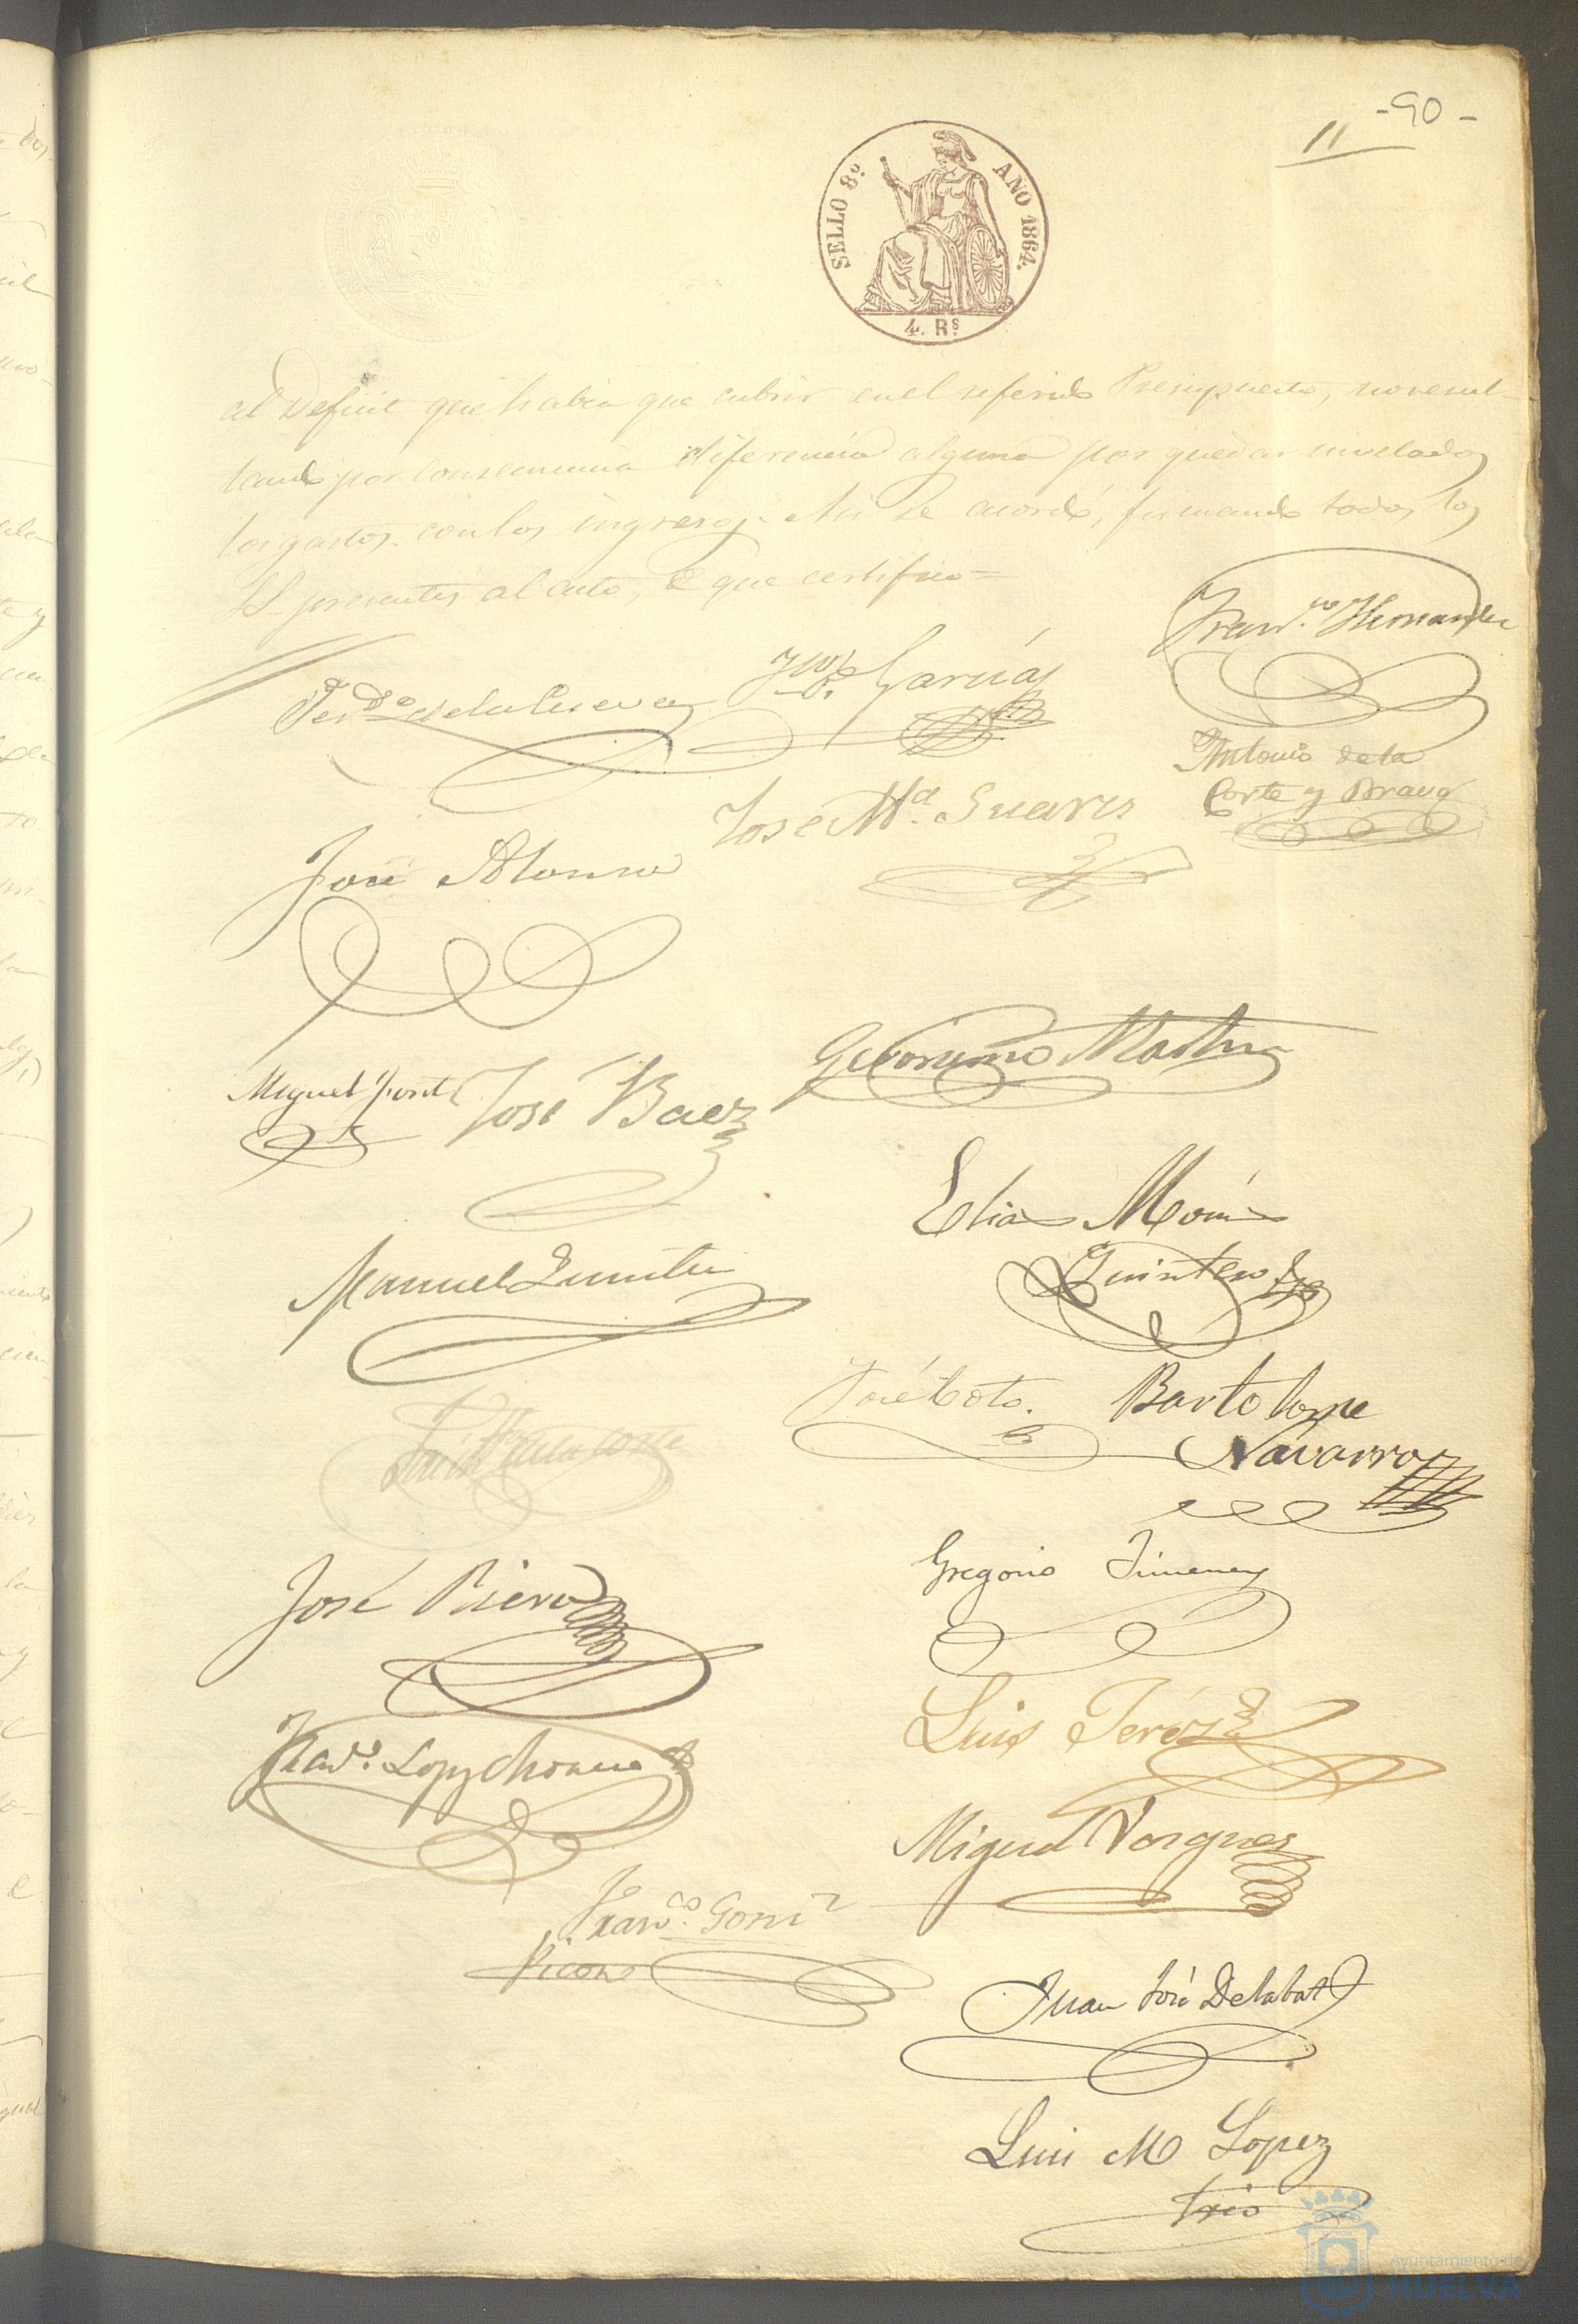 -90-
11
SELLO 8º AÑO 1864.
4. Rs
al Deficit que habia que cubrir en el referido Presupuesto, no resul-
tando por consecuencia diferencia alguna por quedar nivelados
los gastos con los ingresos. Asi se acordó, firmando todos los
SS. presentes al acto, de que certifico=
Franco Hernandez
Ferdo de la Cueva
García
Antonio de la
Corte y Bravo
José Ma. Suares
José Alonso
Geronimo Martin
Miguel Pont
José Baez
Elias Morón
Quintero
Manuel
José Coto.
Bartolome
Navarro
José
Gregorio Jimenez
José Riero
Luis Jeréz
Franco. Lopez
Miguel Vasques
Franco. Gomz
Picon
Juan José Delabat
Luis M Lopez
Srio
Ayuntamiento de
HUELVA